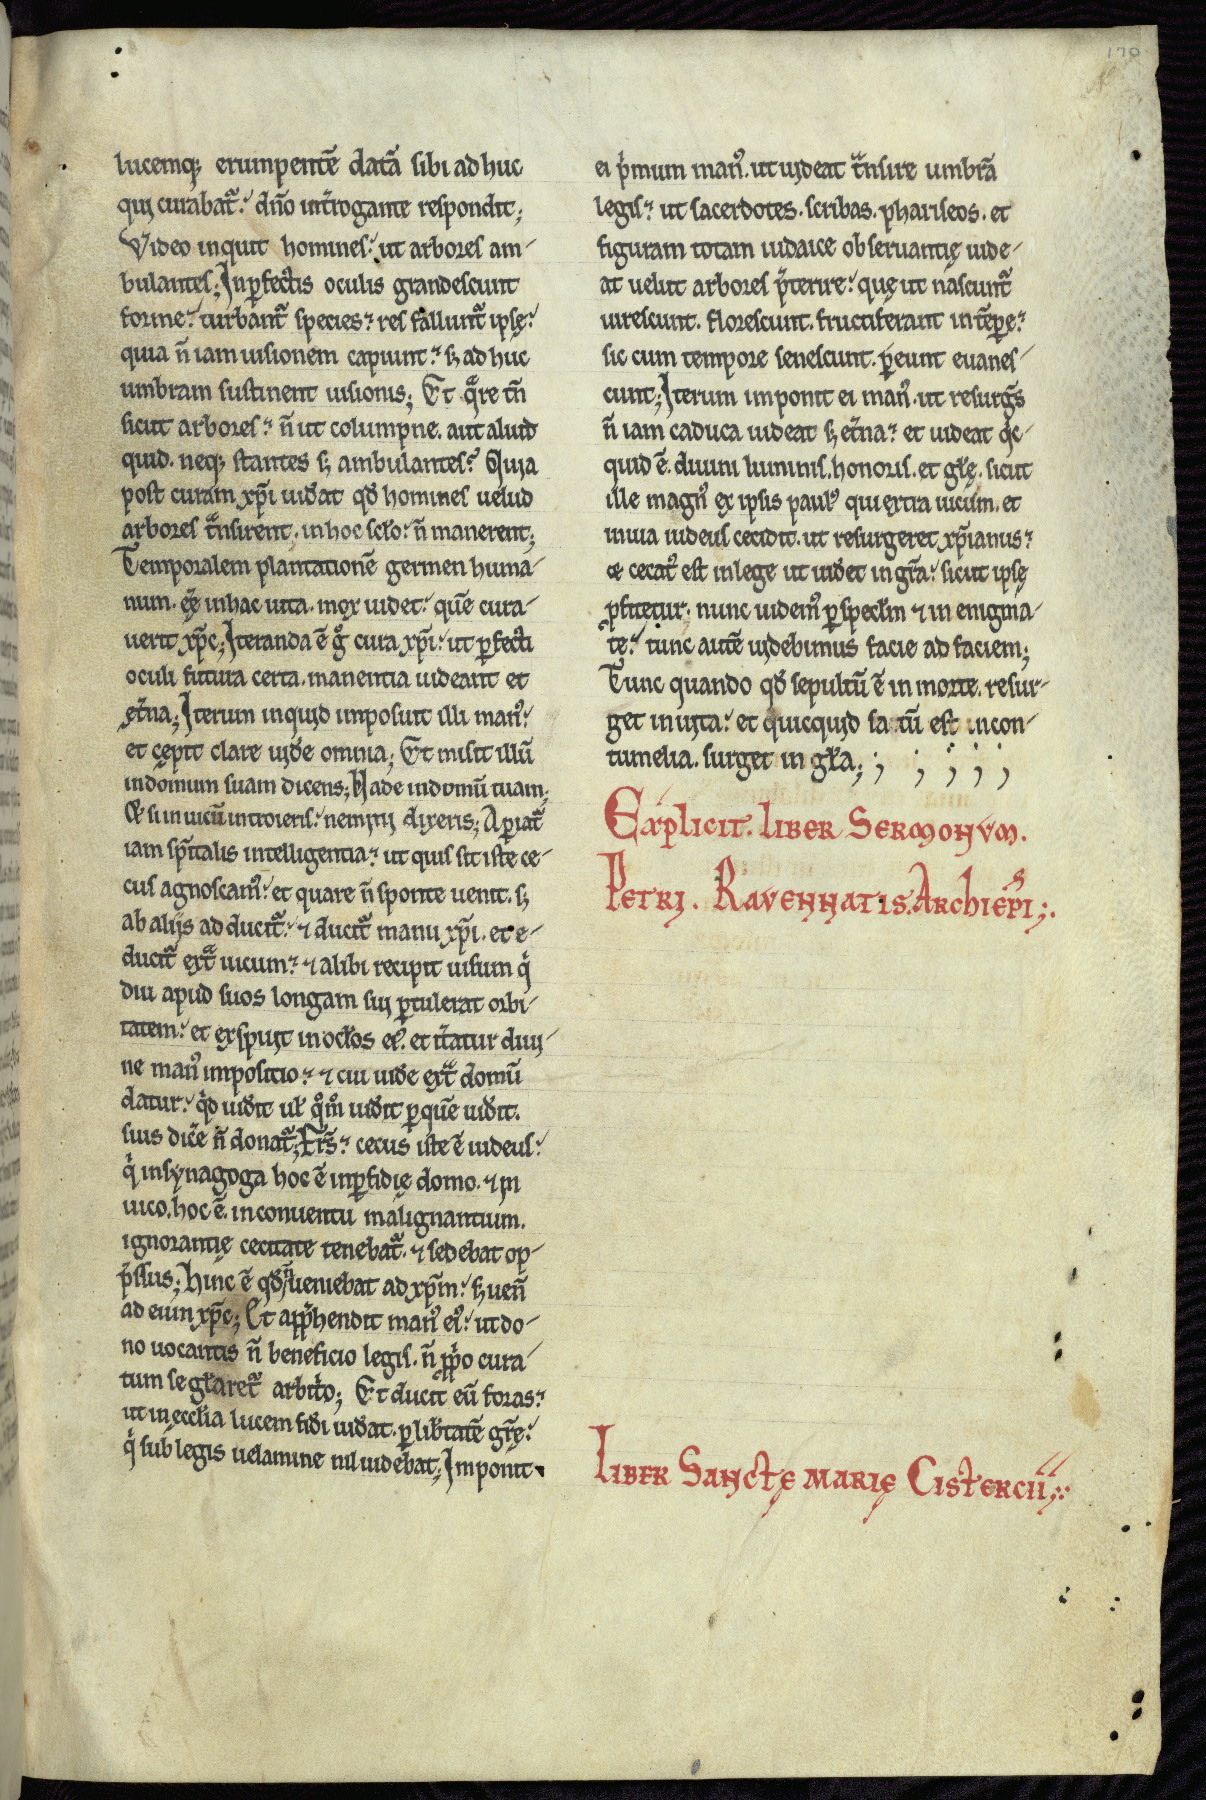 170
lucemq; erumpentē datā sibi adhuc
qui curabat᷑. dn̄o int̄rogante respondit;
Video inquit homines. ut arbores am-
bulantes; Inp̄fectis oculis grandescunt
forme. turbant᷑ species. res fallunt᷑ ipsę.
quia n̄ iam uisionem capiunt. sꝫ adhuc
umbram sustinent uisionis; Et qͣre tn̄
sicut arbores. n̄ ut columpne. aut aliud
quid. neq; stantes sꝫ ambulantes. Quia
post curam xp̄i uid̄at qd̄ homines uelud
arbores tͣnsirent. in hoc scl̄o. n̄ manerent;
Temporalem plantationē germen huma-
num. eę̄ in hac uita. mox uidet. quē cura-
uerit xp̄c; Iteranda ē gͦ cura xp̄i. ut ꝑfecti
oculi futura certa. manentia uideant et
et̄na; Iterum inquid imposuit illi man᷒.
et cępit clare uid̄e omnia; Et misit illū
in domum suam dicens; Vade in domū tuam;
& si in uicū introieris. nemini dixeris; Aꝑiat᷑
iam sp̄italis intelligentia. ut quis sit iste ce-
cus agnoscam᷒. et quare n̄ sponte uenit. sꝫ
ab alijs ad ducit᷑. ⁊ ducit᷑ manu xp̄i. et e-
ducit᷑ extͣ uicum. ⁊ alibi recipit uisum qͥ
diu apud suos longam sui ꝑtulerat orbi-
tatem. et exspuit in ocl̄os ei᷒. et it̄atur diui-
ne man᷒ impositio. ⁊ cui uid̄e extͣ domū
datur. qd̄ uidit ul̄ qͦm̄ uidit ꝑ quē uidit.
suis dic̄e n̄ donat᷑; Fr̄s. cecus iste ē iudeus.
qͥ in synagoga hoc ē inꝑfidię domo. ⁊ in
uico. hoc ē. in conuentu malignantium.
ignorantię cecitate tenebat᷑. ⁊ sedebat op-
p̄ssus; Hinc ē qd̄ n̄ ueniebat ad xp̄m. sꝫ uen̄
ad eum xp̄c; Et app̄hendit man᷒ ei᷒. ut do-
no uocantis n̄ beneficio legis. n̄ ꝓp̄o cura-
tum se gl̄aret᷑ arbit̄o; Et ducit eū foras.
ut in eccl̄ia lucem fid̄i uid̄at. ꝑ lib̄tatē gr̄ę.
qͥ sub legis uelamine nil uidebat; Imponit
ei pͥmum man᷒. ut uideat tͣnsire umbrā
legis. ut sacerdotes. scribas. phariseos. et
figuram totam iudaice obseruantię uide-
at uelut arbores p̄terire. quę ut nascunt᷑
uirescunt. florescunt. fructiferant in tēpe.
sic cum tempore senescunt. ꝑeunt euanes-
cunt; Iterum imponit ei man᷒. ut resurgēs
n̄ iam caduca uideat sꝫ et̄na. et uideat qͥc-
quid ē. diuini luminis. honoris. et gl̄ę. sicut
ille magn᷒ ex ipsis paul᷒ qui extra uicum. et
in uia iudeus cecidit. ut resurgeret xp̄ianus.
& cecat᷒ est in lege ut uid̄et in gr̄a. sicut ipsę
ꝓfitetur. nunc uidem᷒ ꝑ specl̄m ⁊ in enigma-
te. tunc autē uidebimus facie ad faciem;
Tunc quando qd̄ sepultū ē in morte. resur-
get in uita. et quicquid sa tū est incon-
tumelia. surget in gl̄a; ; ; ; ; ;
Explicit. liber Sermonum.
Petri. Ravennatis. Archiep̄i;.
Liber Sanctę Marię Cistercii;: